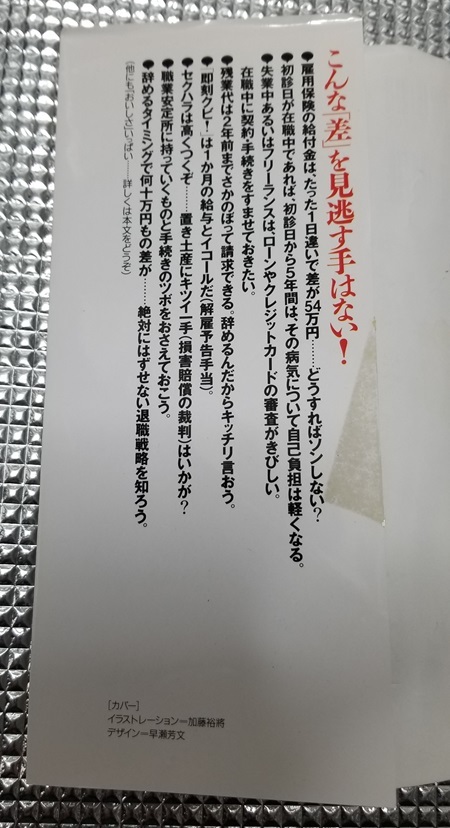 こんな「差」を見逃す手はない！
●雇用保険の給付金は、たった1日違いで差が54万円……どうすればソンしない？
●初診日が在職中であれば、初診日から5年間は、その病気について自己負担は軽くなる。
●失業中あるいはフリーランスは、ローンやクレジットカードの審査がきびしい。
在職中に契約・手続きをすませておきたい。
●残業代は2年前までさかのぼって請求できる。辞めるんだからキッチリ言おう。
●「即刻クビ！」は1か月の給与とイコールだ（解雇予告手当）。
●セクハラは高くつくぞ……置き土産にキツイ一手（損害賠償の裁判）はいかが？
●職業安定所に持っていくものと手続きのツボをおさえておこう。
●辞めるタイミングで何十万円もの差が……絶対にはずせない退職戦略を知ろう。
（他にも“おいしさ”いっぱい――詳しくは本文をどうぞ）
［カバー］
イラストレーション＝加藤裕將
デザイン＝早瀬芳文